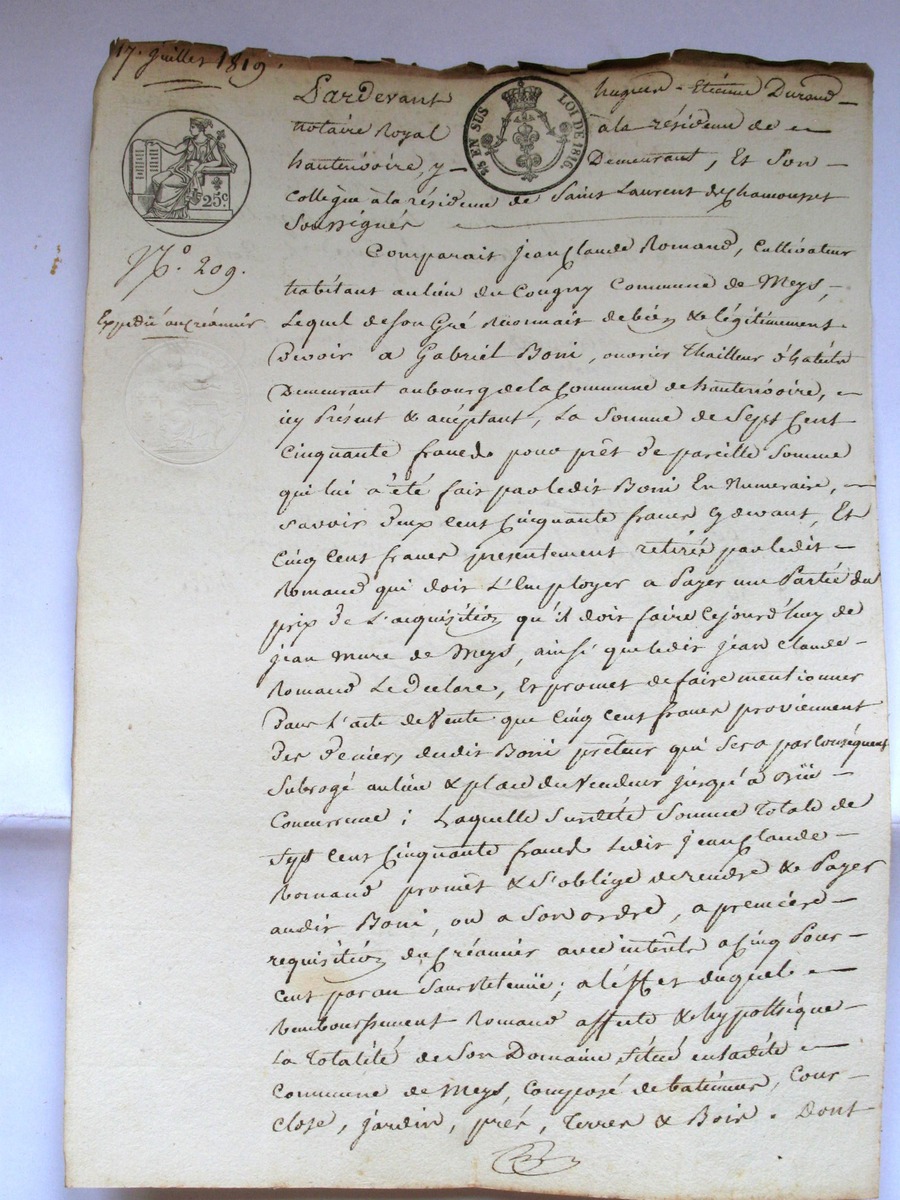 17. Juillet 1819.
Pardevant hugues-Etienne Durand
Notaire Royal à la résidence de
hauterivoire, y Demeurant, Et Son
Collègue à la résidence de Saint Laurent de Chamousset
Soussignés
EN SUS
LOI DE 1816
25c
N.º 209.
Expedié au créancier
Comparait jean Claude Romand, Cultivateur
habitant au lieu du Cougny Commune de Meys,
Lequel de son Gré Reconnait de bien & légitimement
Devoir a Gabriel Boni, ouvrier thailleur d'habits
Demeurant au bourg de la Commune de hauterivoire,
icy Présent & acceptant, La Somme de Sept Cent
Cinquante francs pour prêt de pareille Somme
qui lui a été fait par ledit Boni En Numeraire,
savoir Deux Cent Cinquante francs cydevant, Et
Cinq Cent francs presentement retirés par ledit
Romand qui doit L'Employer a Payer une Partie du
prix De L'acquisition qu'il doit faire Cejourd'huy de
jean Mure de Meys, ainsi que ledit jean Claude
Romand Le Declare, Et promet de faire mentionner
Dans L'acte de Vente que Cinq Cent francs proviennent
Des Deniers dudit Boni prêteur qui Sera par Conséquent
Subrogé au lieu & place du Vendeur jusqu'à
Concurrence; Laquelle Susditte Somme Totale de
Sept Cent Cinquante francs Ledit jean Claude
Romand promet & S'oblige de rendre & Payer
audit Boni, ou a Son ordre, a première
requisition du Créancier avec intérêts a Cinq Pour
Cent par an Sans Retenüe; a l'éffet duquel
Remboursement Romand affecte & hypothéque
La Totalité de Son Domaine Situé en ladite
Commune de Meys, Composé de batimens, Cour
Close, jardin, prés, Terres & Bois. Dont